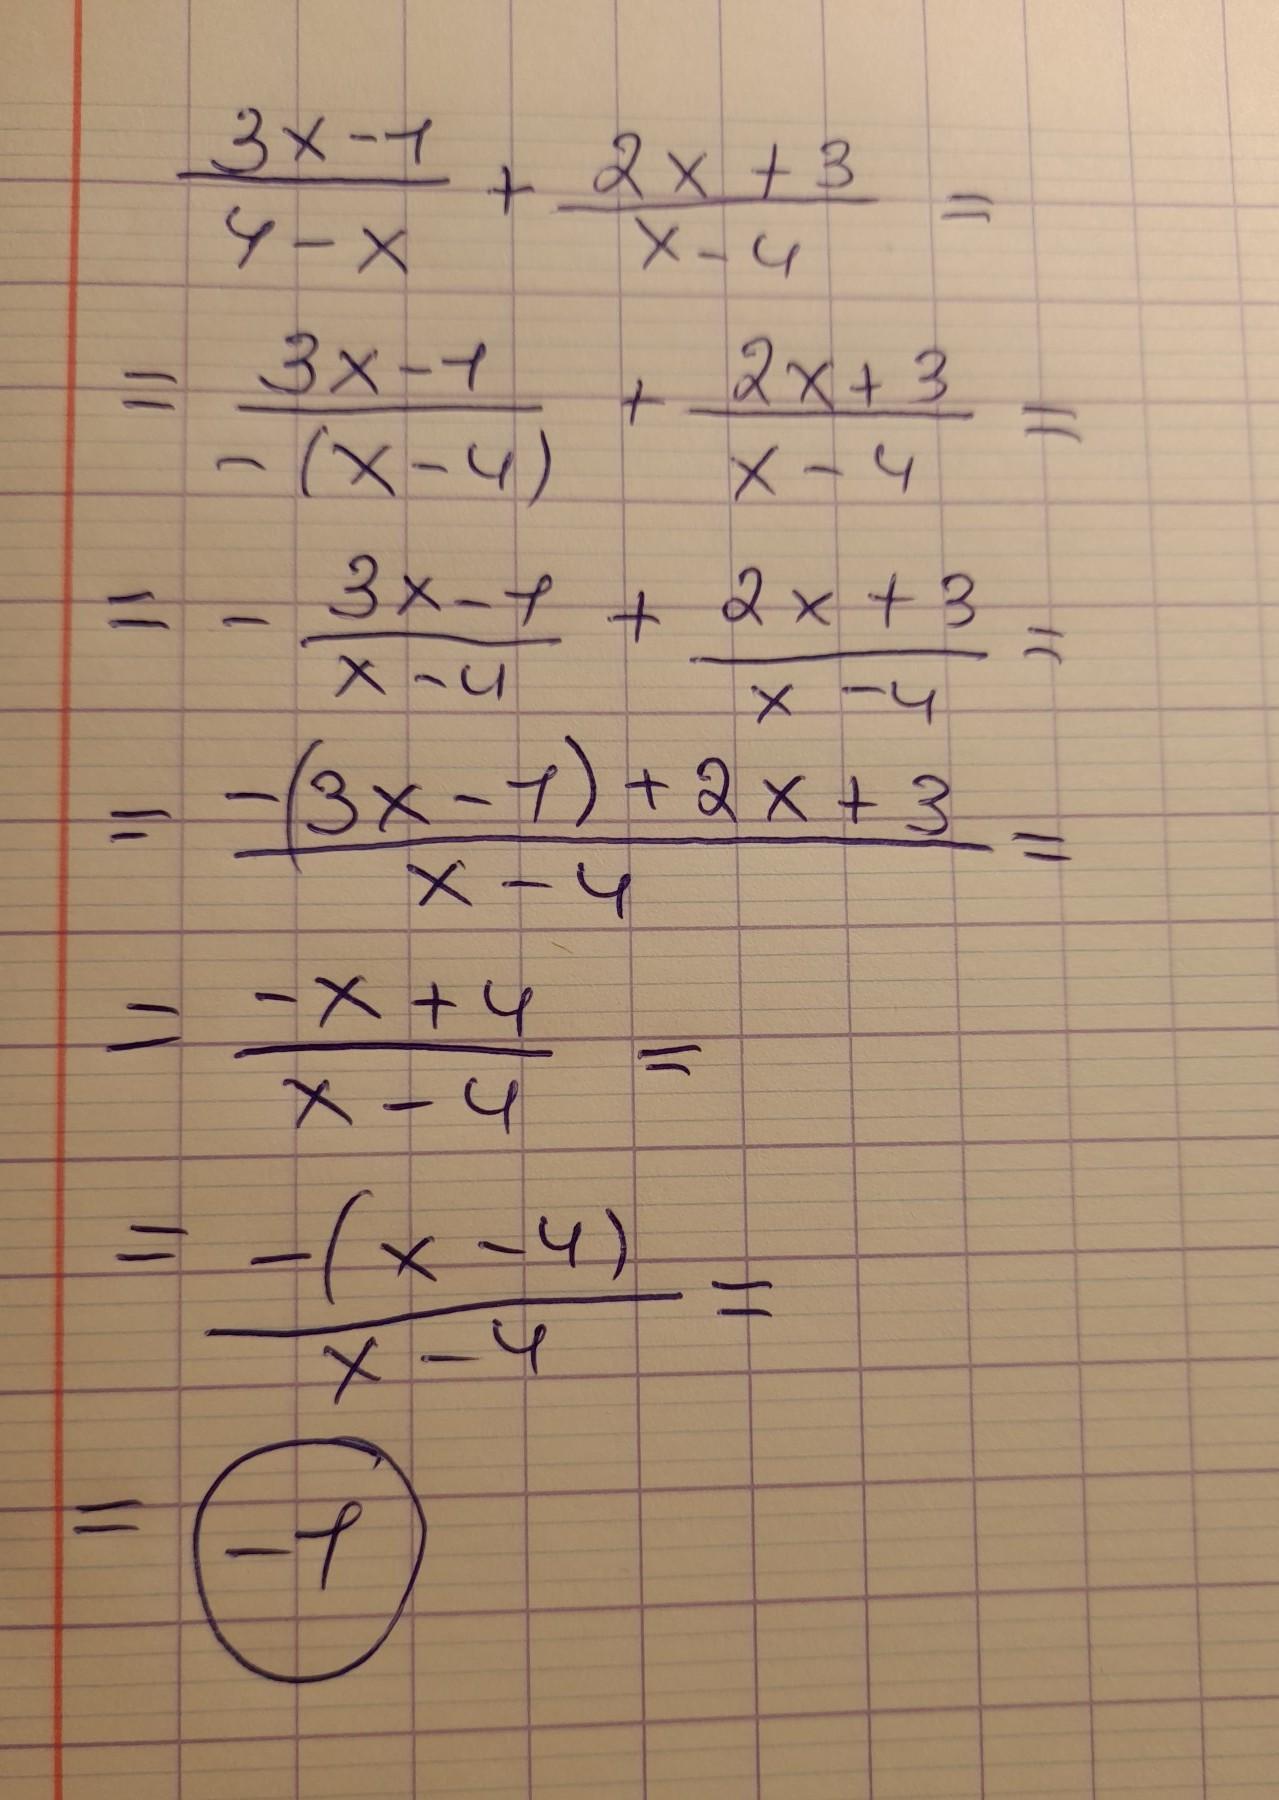 (3x-1)/(4-x) + (2x+3)/(x-4) =
= (3x-1)/(-(x-4)) + (2x+3)/(x-4) =
= - (3x-1)/(x-4) + (2x+3)/(x-4) =
= (-(3x-1)+2x+3)/(x-4) =
= (-x+4)/(x-4) =
= (-(x-4))/(x-4) =
= -1